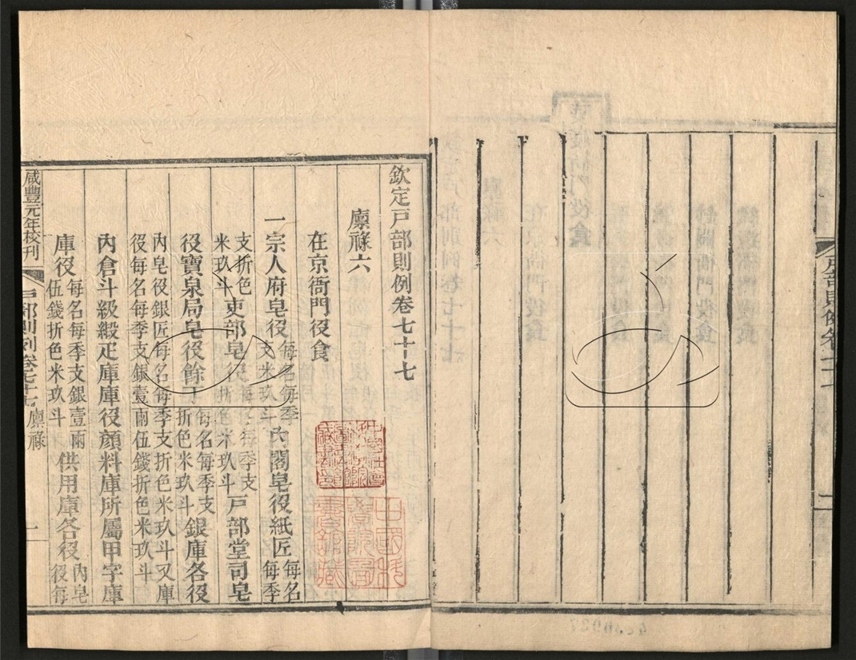 欽定戸部則例卷七十七
廩祿六
在京衙門役食
一宗人府皂役每名每季支米玖斗內閣皂役紙匠每名每季
支折色米玖斗吏部皂役每名每季支折色米玖斗戸部堂司皂
役寶泉局皂役餘丁每名每季支折色米玖斗銀庫各役
內皂役銀匠每名每季支折色米玖斗又庫役每名每季支銀壹兩伍錢折色米玖斗
內倉斗級緞疋庫庫役顏料庫所屬甲字庫
庫役每名每季支銀壹兩伍錢折色米玖斗供用庫各役內皂役每
咸豐元年校刊
戸部則例卷七十七 廩祿
一